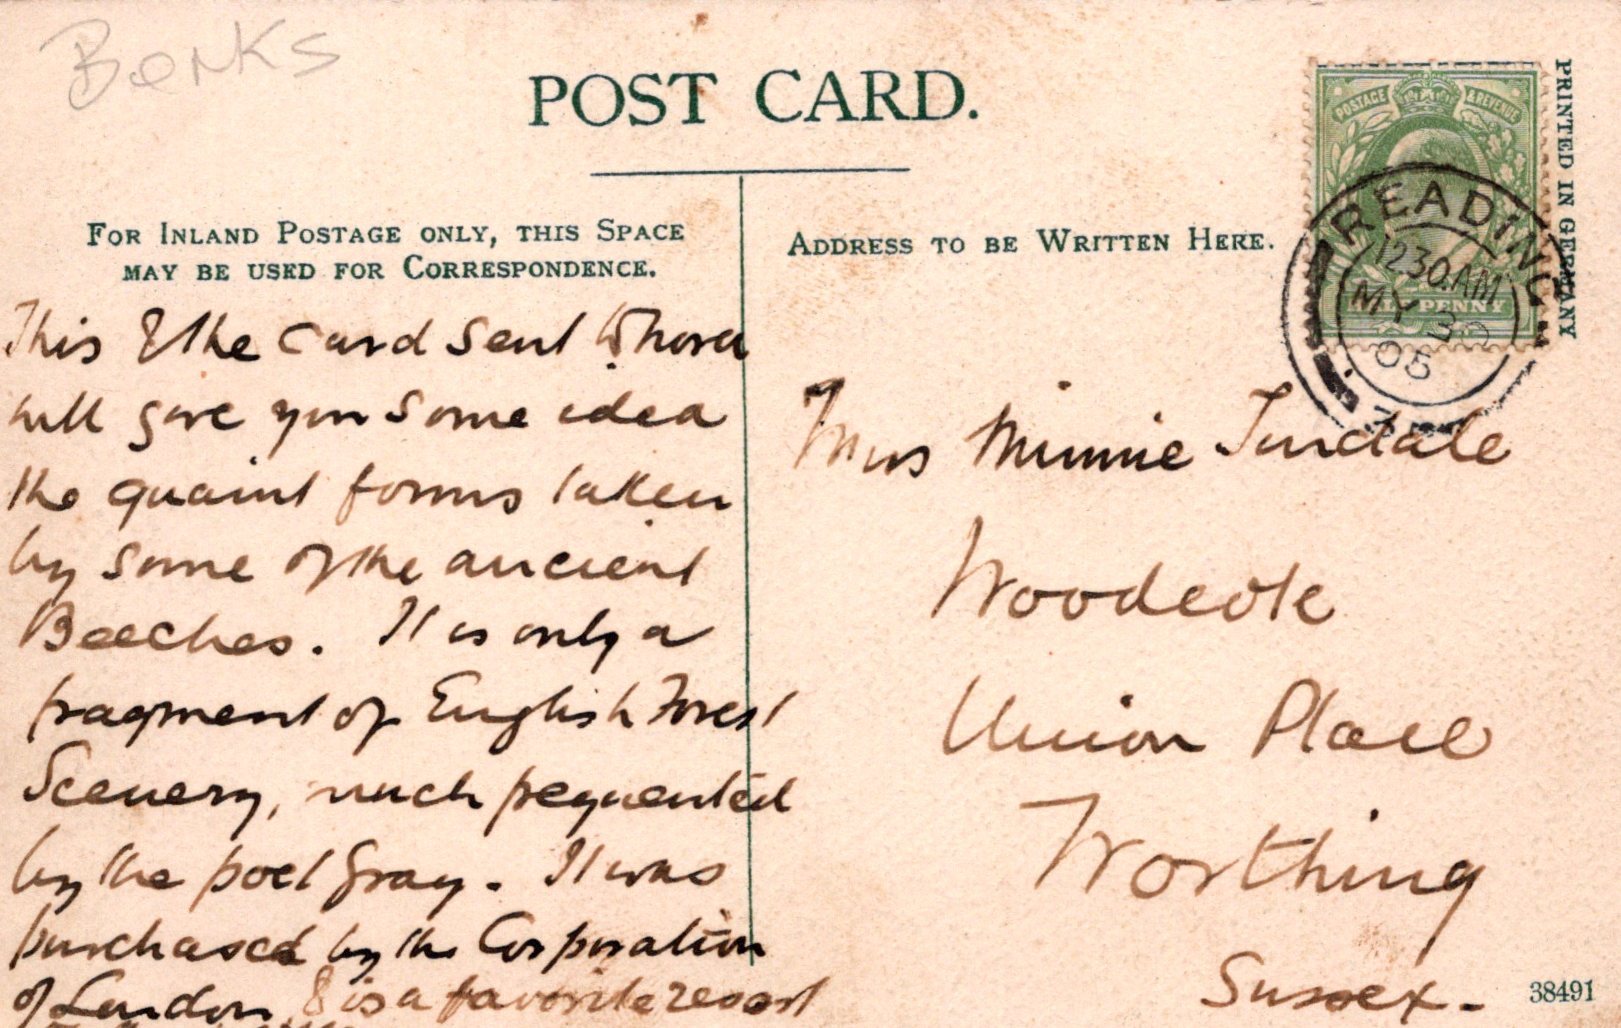 Bonks
POST CARD.
PRINTED IN GERMANY
POSTAGE & REVENUE
PENNY
READING
1230.AM
MY 30
05
FOR INLAND POSTAGE ONLY, THIS SPACE
MAY BE USED FOR CORRESPONDENCE.
ADDRESS TO BE WRITTEN HERE.
This & the card sent
will give you some idea
the quaint forms taken
by some of the ancient
Beeches. It is only a
fragment of English Forest
Scenery, much frequented
by the poet Gray. It was
purchased by the Corporation
of London & is a favorite resort
Miss Minnie Tindale
Woodcote
Union Place
Worthing
Sussex.
38491